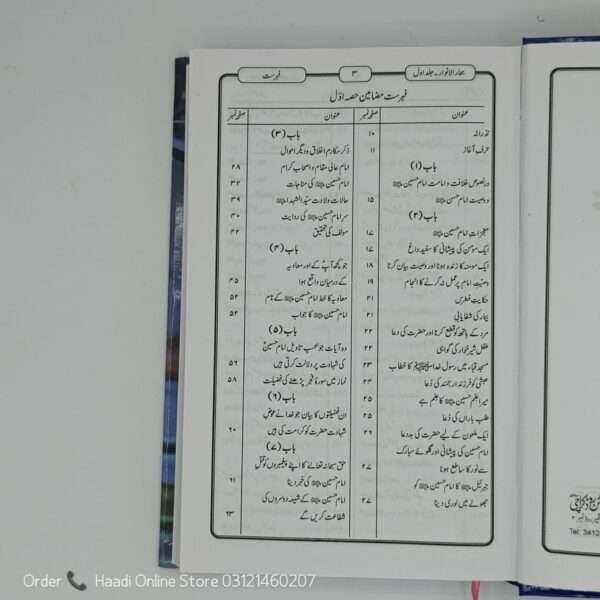 بحار الانوار۔ جلد اول
۳
فہرست
فہرست مضامین حصہ اوّل
عنوان صفحہ نمبر
نذرانہ ۱۰
حرف آغاز ۱۱
باب (۱)
در نصوص خلافت و امامت امام حسینؑ
و وصیت امام حسنؑ ۱۵
باب (۲)
معجزات امام حسینؑ ۱۷
ایک مؤمن کی پیشانی کا سفید داغ ۱۷
ایک مومنہ کا زندہ ہونا اور وصیت بیان کرنا ۱۸
وصیت امام پر عمل نہ کرنے کا انجام ۱۹
حکایت فطرس ۲۱
بیمار کی شفایابی ۲۱
مرد کے ہاتھ کو قطع کرنا اور حضرت کی دعا ۲۲
طفل شیر خوار کی گواہی ۲۲
مسجد قباء میں رسول خداؐ کا خطاب ۲۳
حبشی کو فرزند ارجمند کی دُعا ۲۴
میرا علم حسینؑ کا علم ہے ۲۵
طلب باراں کی دعا ۲۵
ایک ملعون کے لیے حضرت کی بددعا ۲۶
امام حسین کی پیشانی اور گلوئے مبارک
سے نور کا ساطع ہونا ۲۷
جبرئیلؑ کا امام حسینؑ کو
جھولے میں لوری دینا ۲۷
عنوان صفحہ نمبر
باب (۳)
ذکر مکارم اخلاق و دیگر احوال
امام عالی مقام و اصحاب کرام ۲۸
امام حسینؑ کی مناجات ۳۲
حالات ولادت سیّد الشہداءؑ ۳۹
سر امام حسینؑ کی روایت ۴۰
مؤلف کی تحقیق ۴۲
باب (۴)
جو کچھ آپؑ کے اور معاویہ
کے درمیان واقع ہوا ۴۵
معاویہ کا خط امام حسینؑ کے نام ۵۲
امام حسینؑ کا جواب ۵۲
باب (۵)
وہ آیات جو حسب تاویل امام حسینؑ
کی شہادت پر دلالت کرتی ہیں ۵۶
نماز میں سورۂ فجر پڑھنے کی فضیلت ۵۸
باب (۶)
ان فضیلتوں کا بیان جو خدا نے عوض
شہادت حضرت کو کرامت کی ہیں ۶۰
باب (۷)
حق سبحانہ تعالیٰ کا اپنے پیغمبروں کو قتل
امام حسینؑ کی خبر دینا ۶۱
امام حسینؑ کے شیعہ دوسروں کی
شفاعت کریں گے ۶۳
Order Haadi Online Store 03121460207
Tel: 3412